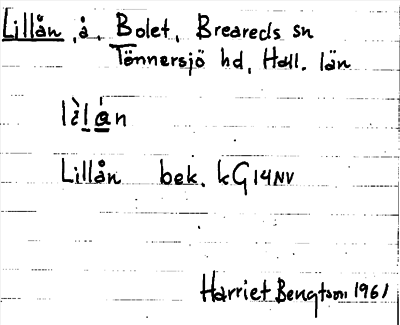 Lillån, å, Bolet, Breareds sn
Tönnersjö hd, Hall. län
Lillån bek. kG14NV
Harriet Bengtson 1961